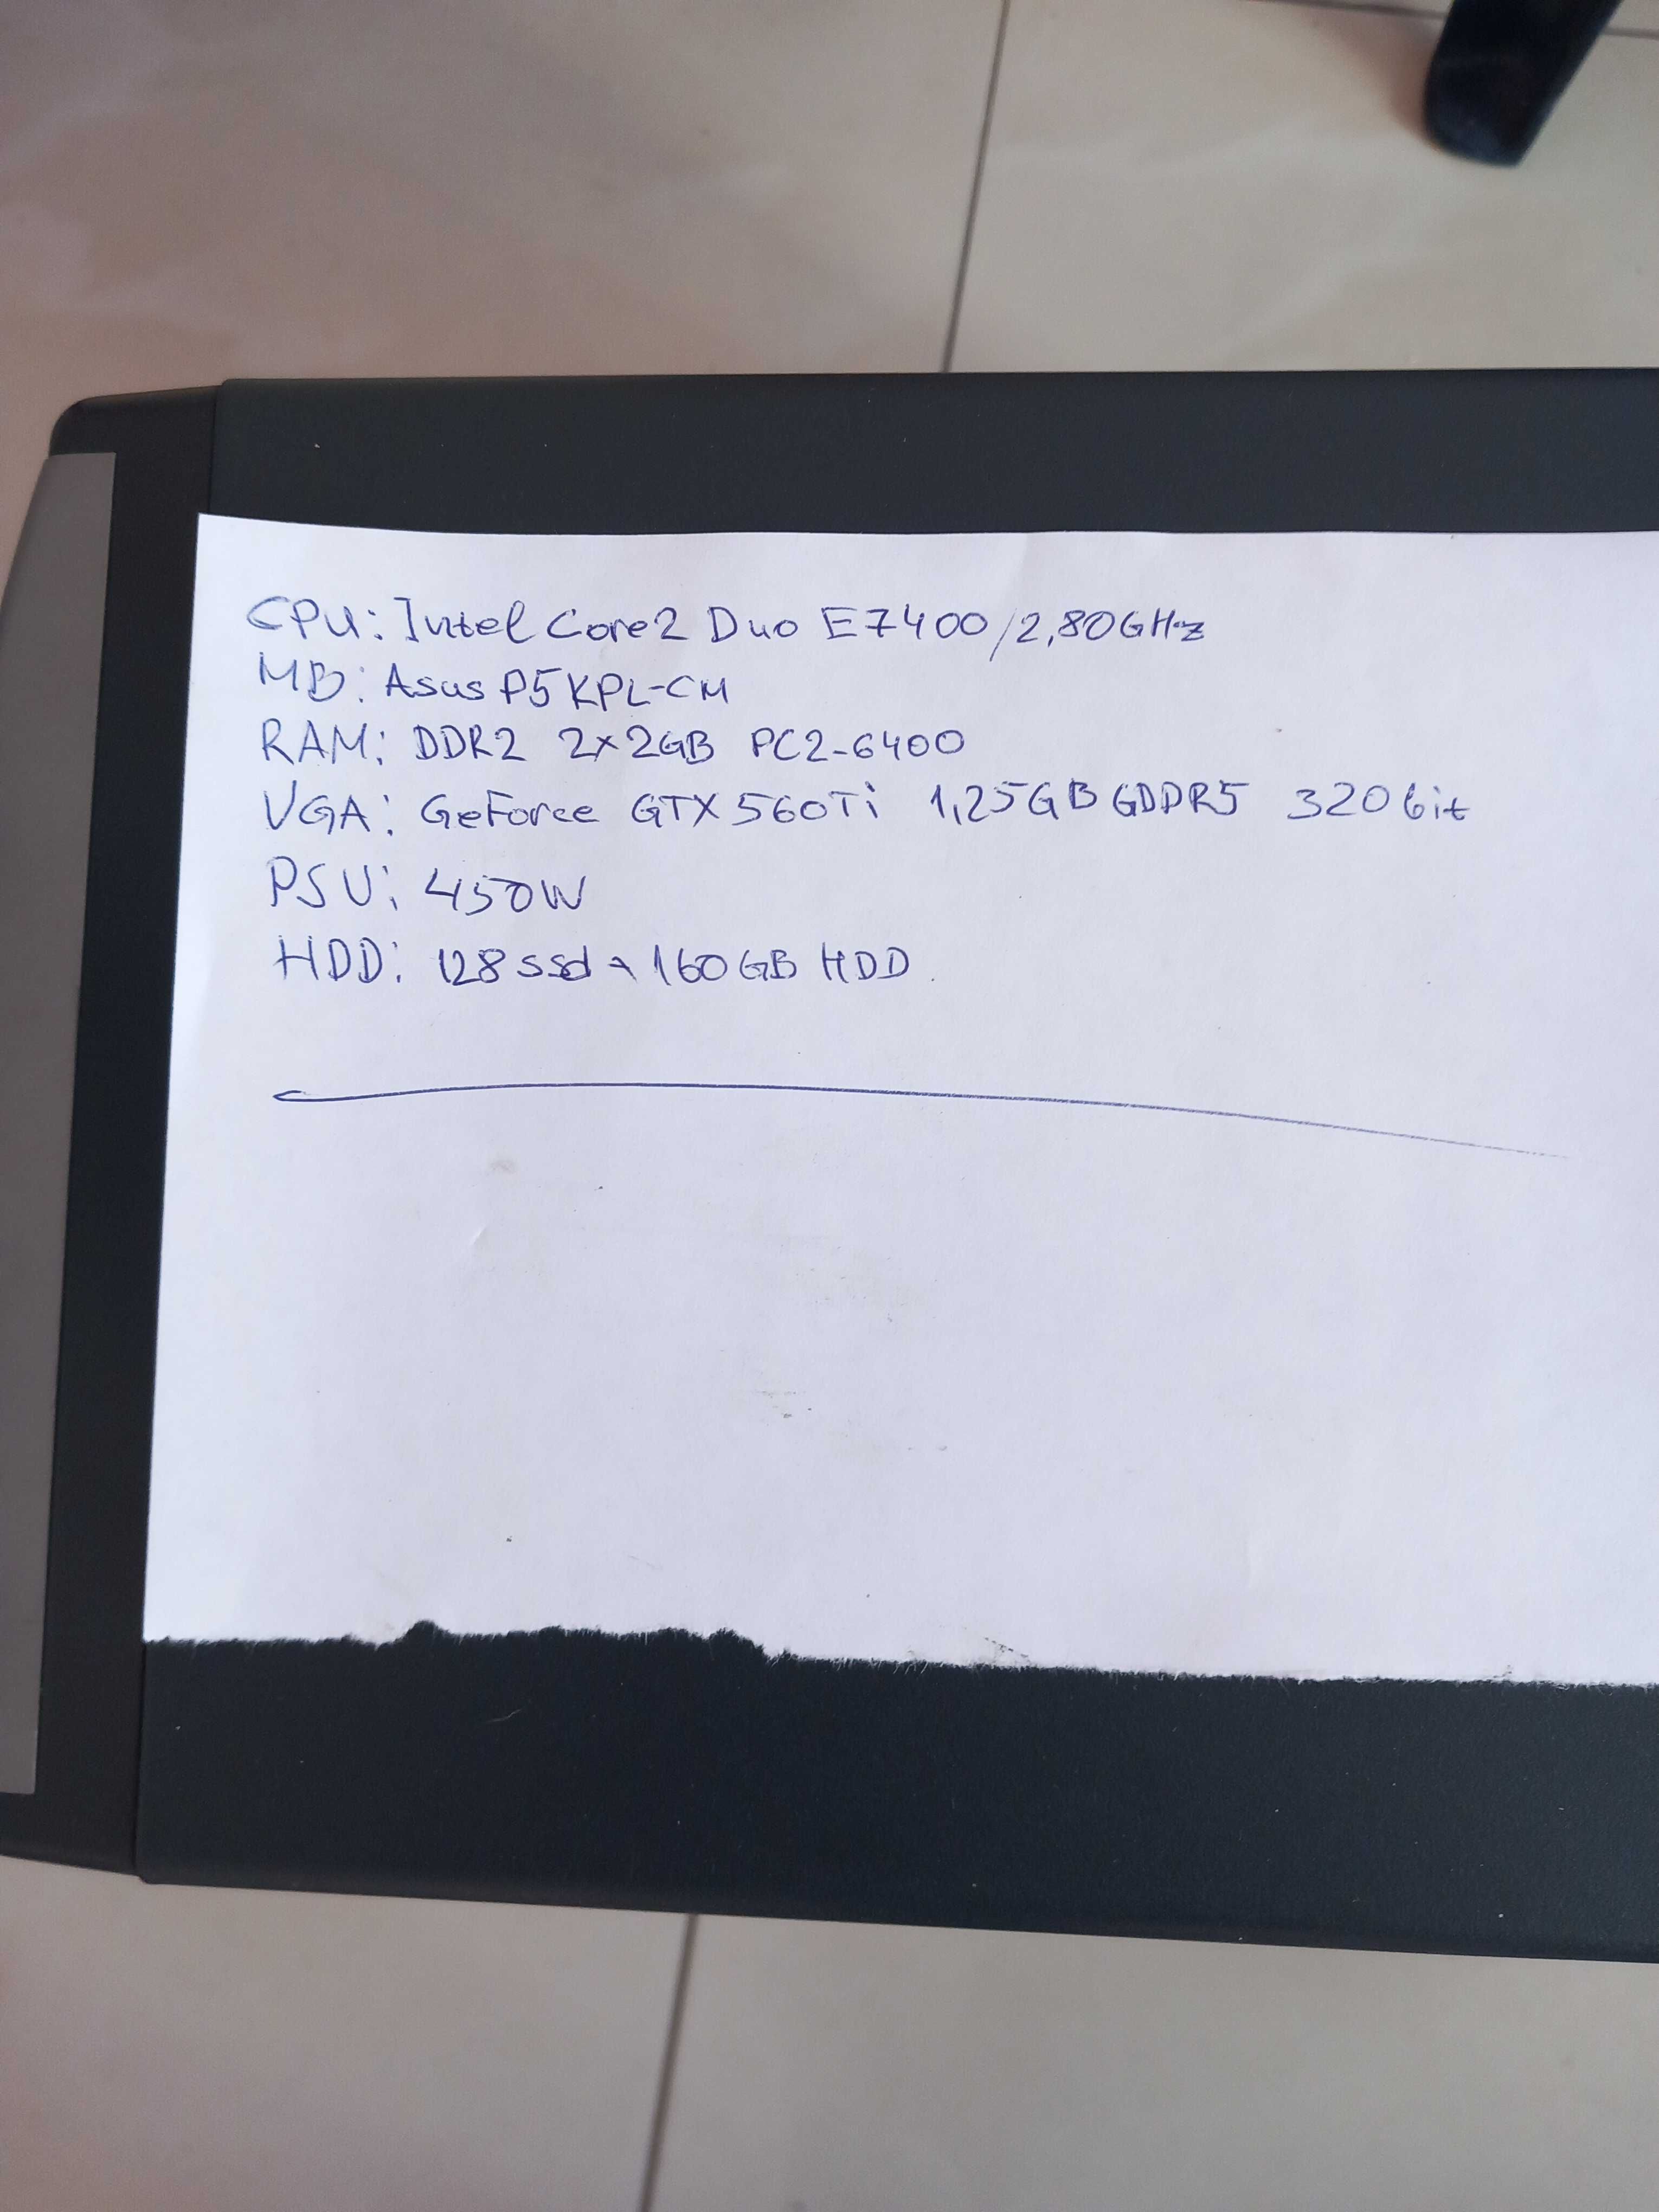 CPU: Intel Core2 Duo E7400/2,80GHz
MB: Asus P5KPL-CM
RAM: DDR2 2x2GB PC2-6400
VGA: GeForce GTX 560Ti 1,25GB GDDR5 320bit
PSU: 450W
HDD: 128 ssd 160GB HDD